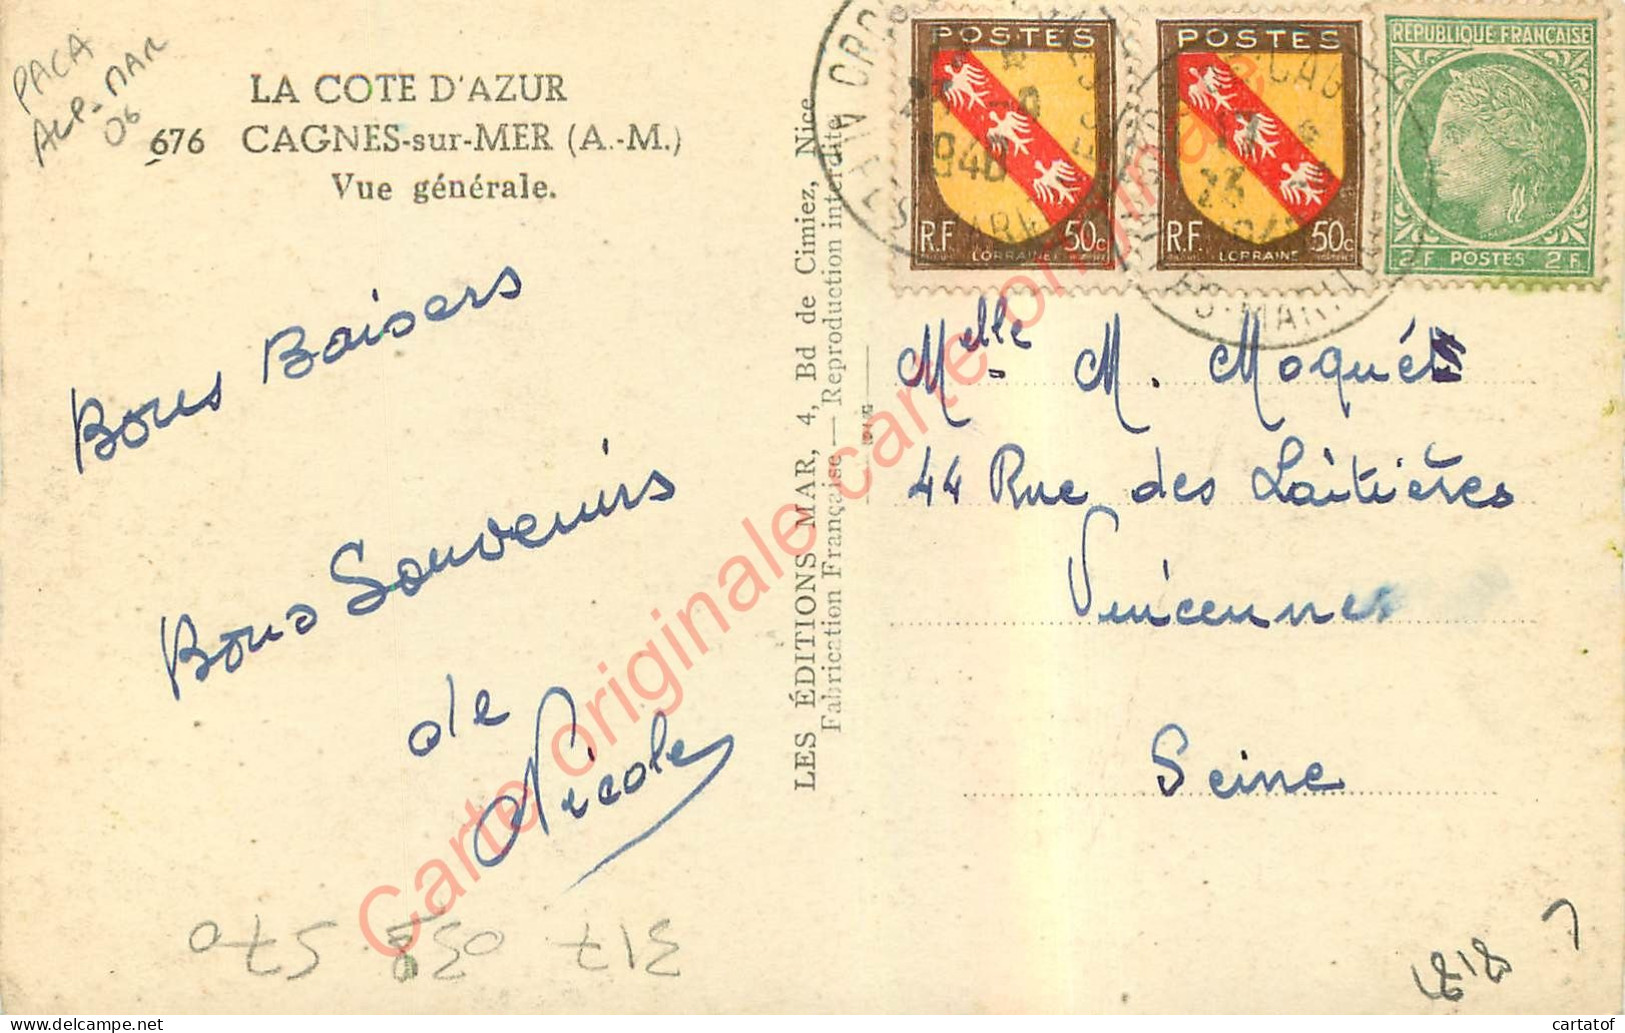 PACA
ALP-MAR
06
LA COTE D'AZUR
676 CAGNES-sur-MER (A.-M.)
Vue générale.
Bons Baisers
Bons Souvenirs
de
Nicole
317 038 570
LES ÉDITIONS MAR, 4, Bd de Cimiez, Nice
Fabrication Française — Reproduction interdite
POSTES
R.F. 50c
LORRAINE
POSTES
R.F. 50c
LORRAINE
REPUBLIQUE FRANÇAISE
2 F POSTES 2 F
Melle M. Moquét
44 Rue des Laîtières
Vincennes
Seine
Carte originale
cartatof